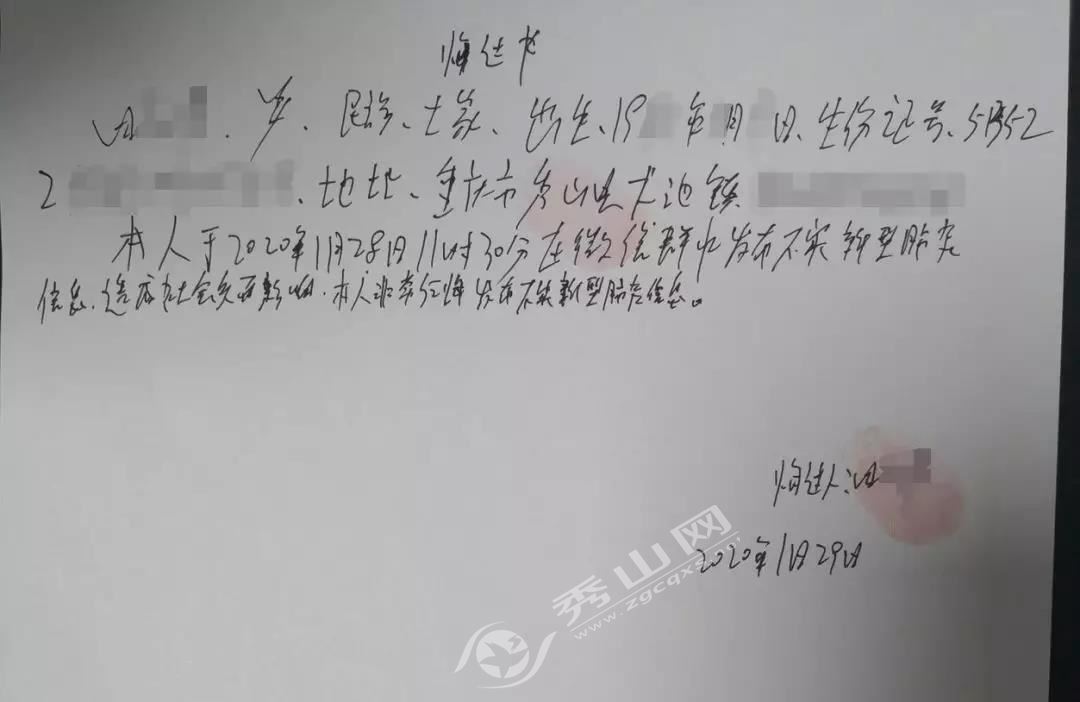 悔过书
田 、岁、民族、土家、出生、19 年 月 日、生份证号、51352
2 、地址、重庆市秀山县龙池镇
本人于2020年1月28日11时30分在微信群中发布不实新型肺炎
信息、造成社会负面影响、本人非常后悔发布不实新型肺炎信息。
悔过人:田
2020年1月29日
秀山网
www.zgcqxs.